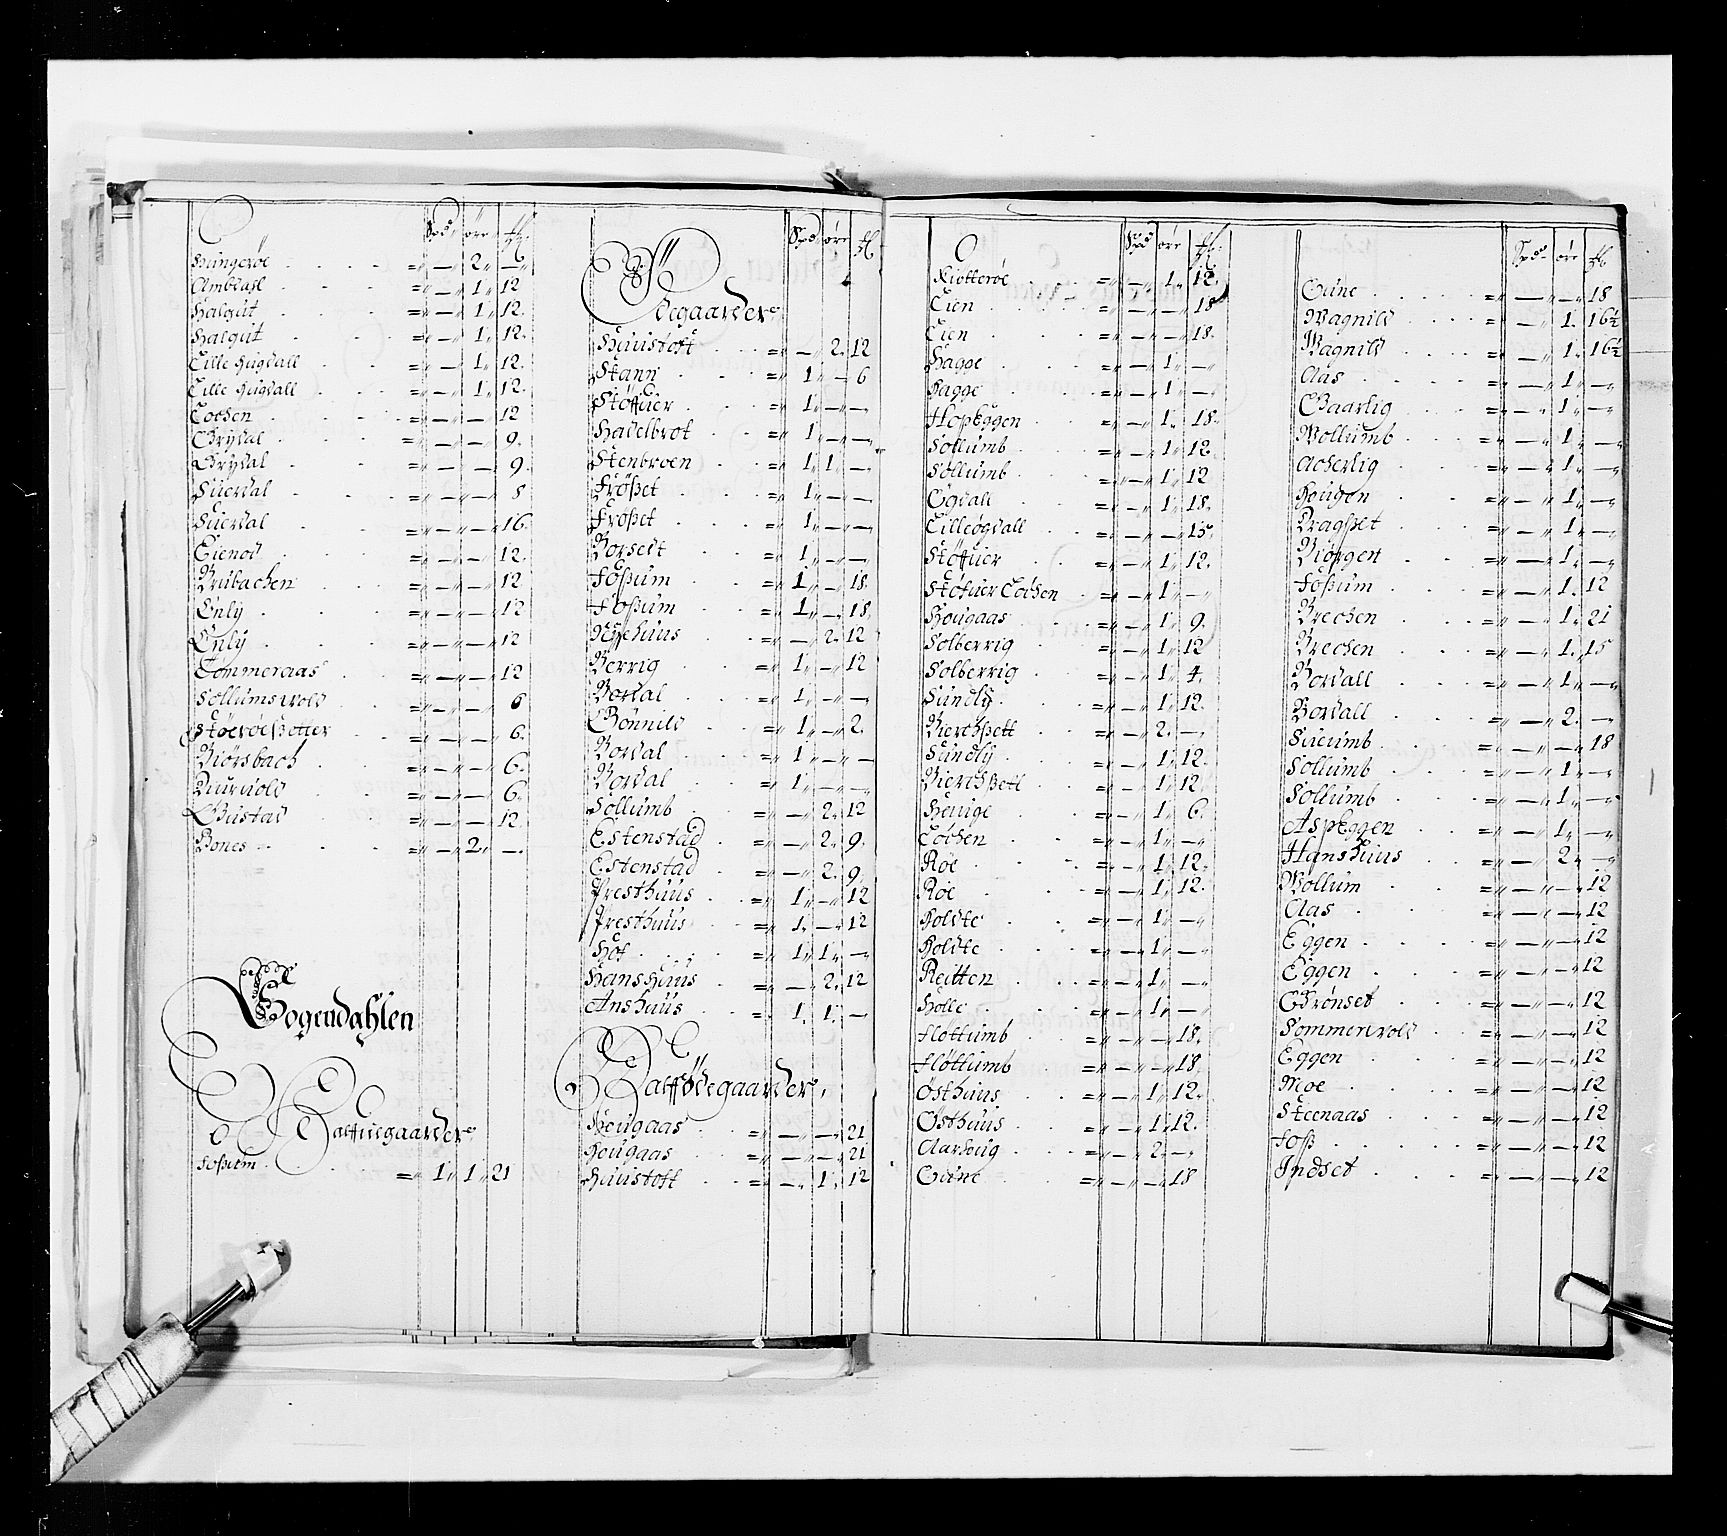 Spd øre ℔
Hungerøe = — 2 —
Ambdahl = — 1 12
Halgut = — 1 12
Halgut = — 1 12
Lille Hugdall = — 1 12
Lille Hugdall = — 1 12
Lochen = — — 12
Grydal = — — 9
Grydal = — — 9
Suerdal = — — 8
Suerdal = — — 16
Eienod = — — 12
Brubachen = — — 12
Enlÿ = — — 12
Enlÿ = — — 12
Lommeraas = — — 12
Sollumswold = — — 6
Støerøeßetter = — — 6
Biørsbach = — — 6
= — — 6
Gustad = — — 12
Bones = — 2 —
Sogendahlen
Halffuegaarder
Foßum = 1 1 21
Spd øre ℔
Ødegaarder
Huustoft = — 2 12
Stann = 1 — 6
Støffuer = 1 — —
Hadelbrot = 1 — —
Stenbroen = 1 1 —
Frøßet = 1 — —
Frøßet = 1 — —
Borsedt = 1 — —
Foßum = 1 — 18
Foßum = 1 — 18
Nÿehuus = — 2 12
Berrig = 1 — 12
Bordal = 1 — —
Bønnild = 1 — 2
Bordal = 1 — —
Bordal = 1 — —
Sollumb = — 2 12
Estenstad = — 2 9
Estenstad = — 2 9
Presthuus = 1 — 12
Presthuus = 1 — 12
Hof = 1 1 —
Hanshuus = — 2 12
Anshuus = 1 1 —
Halffødegaarder
Hougaas = — — 21
Hougaas = — — 21
Huustoft = — 1 12
Spd øre ℔
Kiotterøe = — 1 12
Lien = — — 18
Lien = — — 18
Hagge = — 1 —
Hagge = — 1 —
HopEggen = — 1 18
Sollumb = — 1 12
Sollumb = — 1 12
Ogdall = — 1 18
Lilleøgdall = — — 15
Støffuer = — 1 12
Støfuer Lochen = — 1 —
Hougaas = — 1 9
Solberrig = — 1 12
Solberrig = — 1 4
Sundlÿ = — 1 12
Bierchßett = — 2 —
Sundlÿ = — 1 12
Bierchßett = — 1 12
Hauge = — 1 6
Lochen = — 1 —
Røe = — 1 12
Røe = — 1 12
Holdte = — 1 —
Holdte = — 1 —
Reitten = — 1 —
Holle = — 1 —
Fløttumb = — — 18
Fløttumb = — — 18
Østhuus = — 1 12
Østhuus = — 1 12
Aarhoug = — 2 —
Gune = — — 18
Spd øre ℔
Gune = — — 18
Wagnild = — 1 16½
Wagnild = — 1 16½
Aas = — 1 —
Gaarlig = — 1 —
Wollumb = — 1 —
Acherlig = — 1 —
Hougen = — 1 —
Dragßet = — 1 —
Biørgen = — 1 —
Foßum = — 1 12
Brechen = — 1 21
Brechen = — 1 15
Bordall = — 1 —
Bordall = — 2 —
= — — 18
Sollumb = — 1 —
Sollumb = — 1 —
AspEggen = — 1 —
Hanshuus = — 2 —
Wollum = — — 12
Aas = — — 12
Eggen = — — 12
Eggen = — — 12
Grønset = — — 12
Sommervold = — — 12
Eggen = — — 12
Moe = — — 12
Steenaas = — — 12
Foß = — — 12
Indset = — — 12